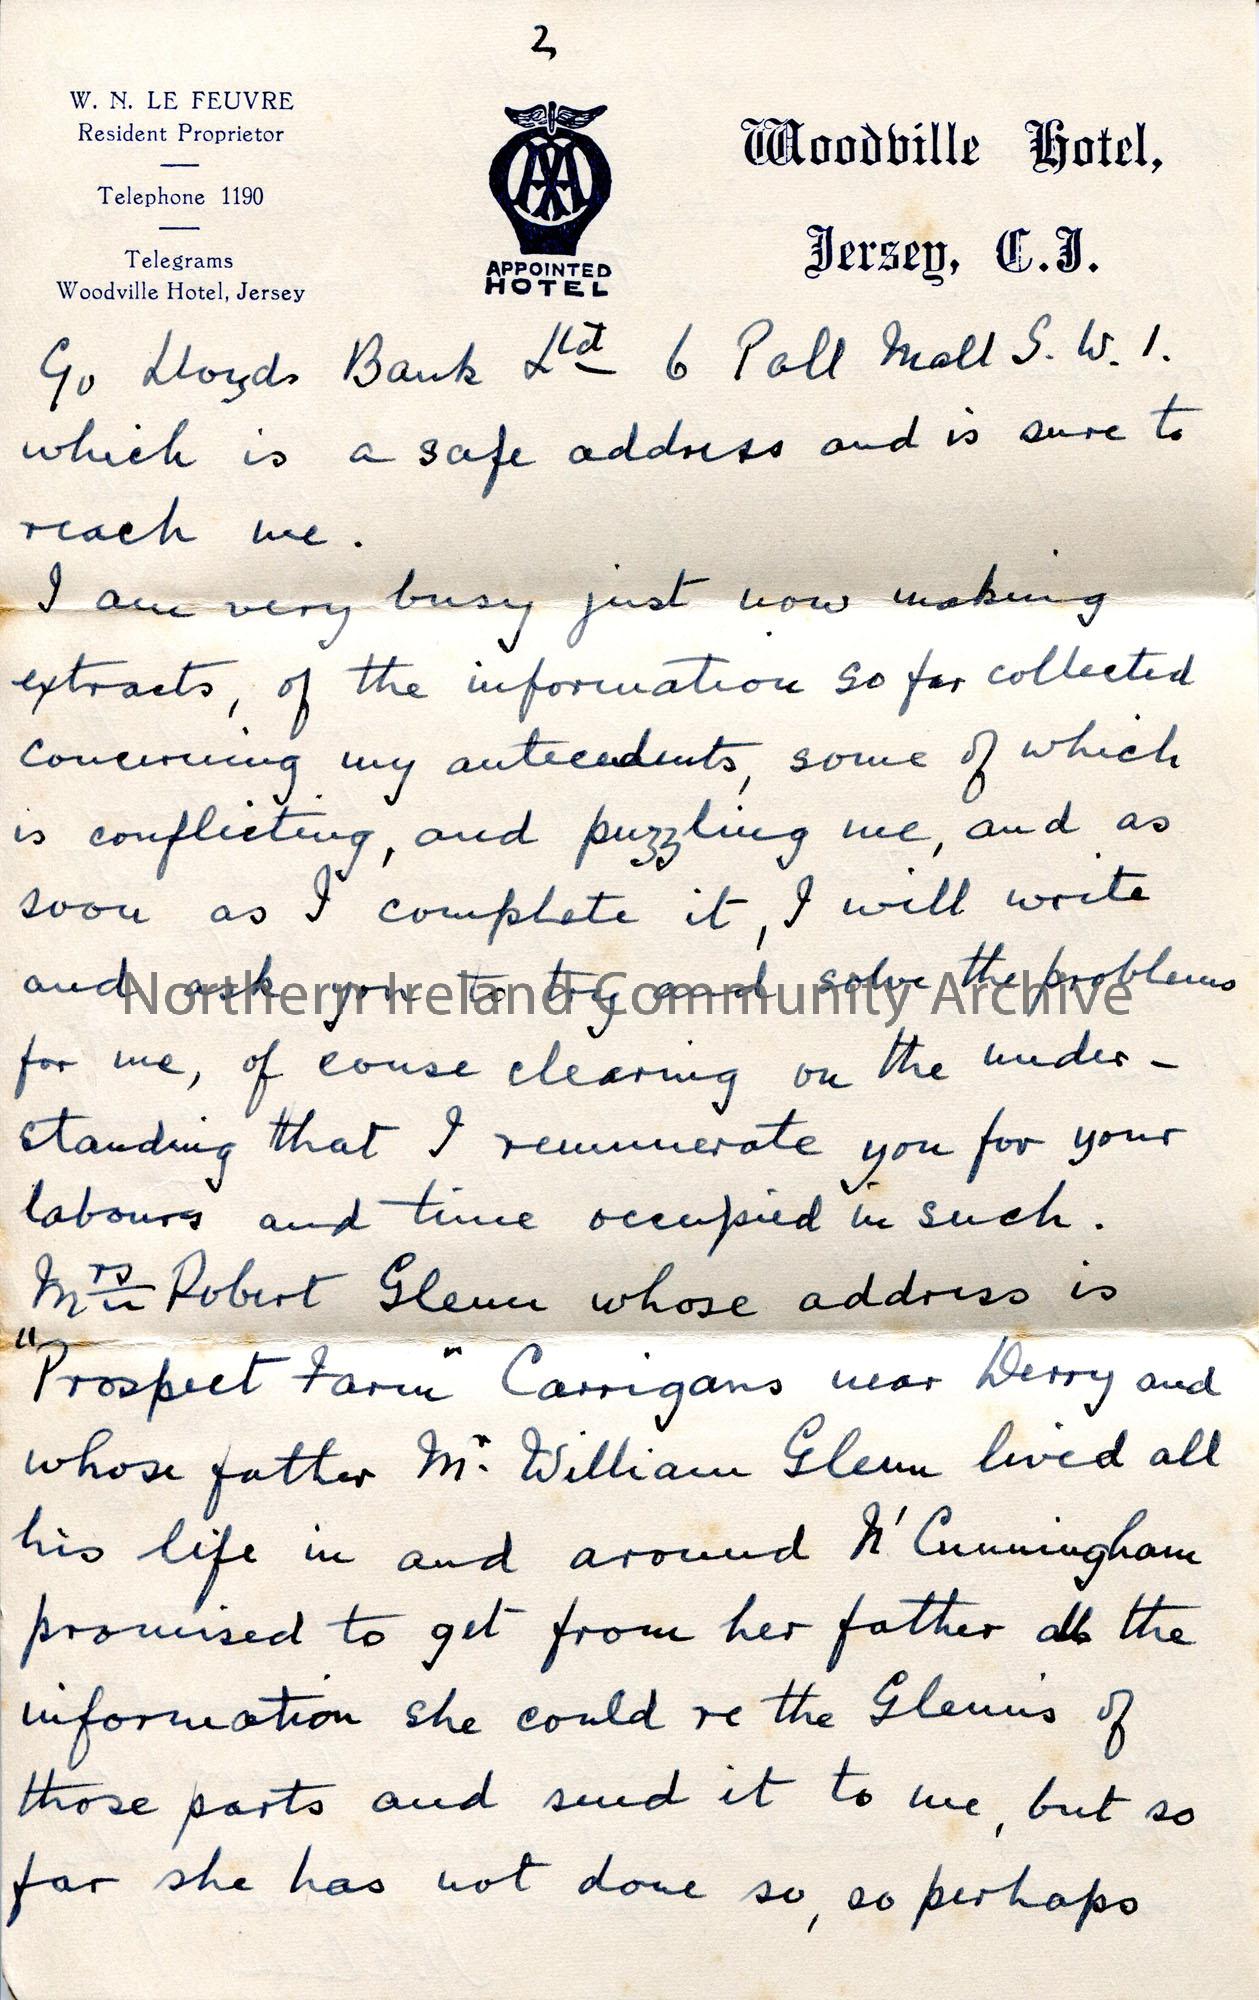 2
W. N. LE FEUVRE
Resident Proprietor
Telephone 1190
Telegrams
Woodville Hotel, Jersey
AA
APPOINTED
HOTEL
Woodville Hotel,
Jersey, C.I.
C/o Lloyds Bank Ltd 6 Pall Mall S. W. 1.
which is a safe address and is sure to
reach me.
I am very busy just now making
extracts, of the information so far collected
concerning my antecedents, some of which
is conflicting, and puzzling me, and as
soon as I complete it, I will write
and ask you to try and solve the problems
Northern Ireland Community Archive
for me, of couse clearing on the under-
standing that I remunerate you for your
labours and time occupied in such.
Mrs Robert Glenn whose address is
"Prospect Farm" Carrigans near Derry and
whose father Mr. William Glenn lived all
his life in and around N' Cunningham
promised to get from her father all the
information she could re the Glenn's of
those parts and send it to me, but so
far she has not done so, so perhaps